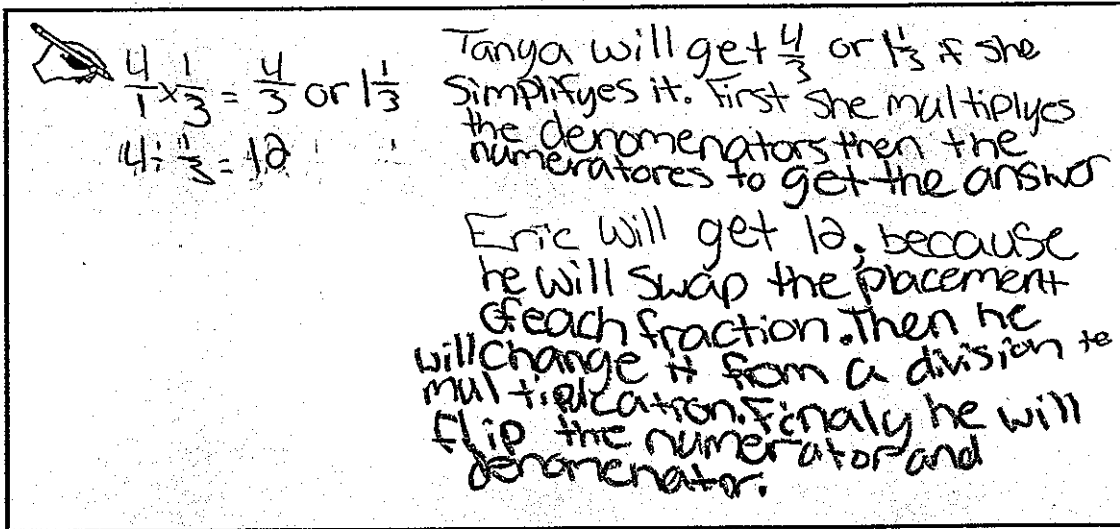 4/1 × 1/3 = 4/3 or 1 1/3
4 ÷ 1/3 = 12
Tanya will get 4/3 or 1 1/3 if she
Simplifyes it. First she multiplyes
the denomenators then the
numeratores to get the answor
Eric will get 12, because
he will swap the placement
of each fraction. Then he
will change it from a division to
multiplcation. Finaly he will
flip the numerator and
denomenator.